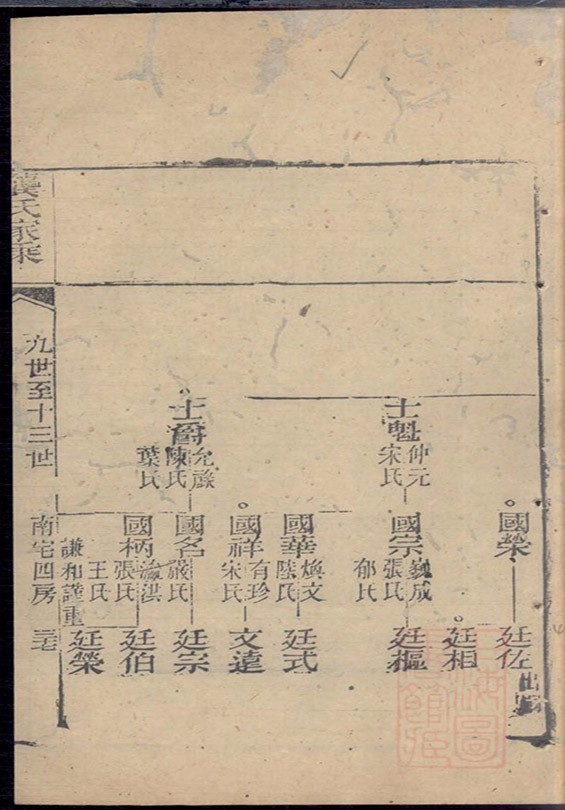 士魁
仲元
宋氏
士爵
允祿
陳氏
葉氏
國榮
國宗
巍成
張氏
郁氏
國華
煥文
陸氏
國祥
有珍
宋氏
國名
嚴氏
國柄
張氏
王氏
謙和謹重
廷佐
廷相
廷樞
廷式
文遠
廷宗
廷伯
廷榮
氏家乘
九世至十三世
南宅四房